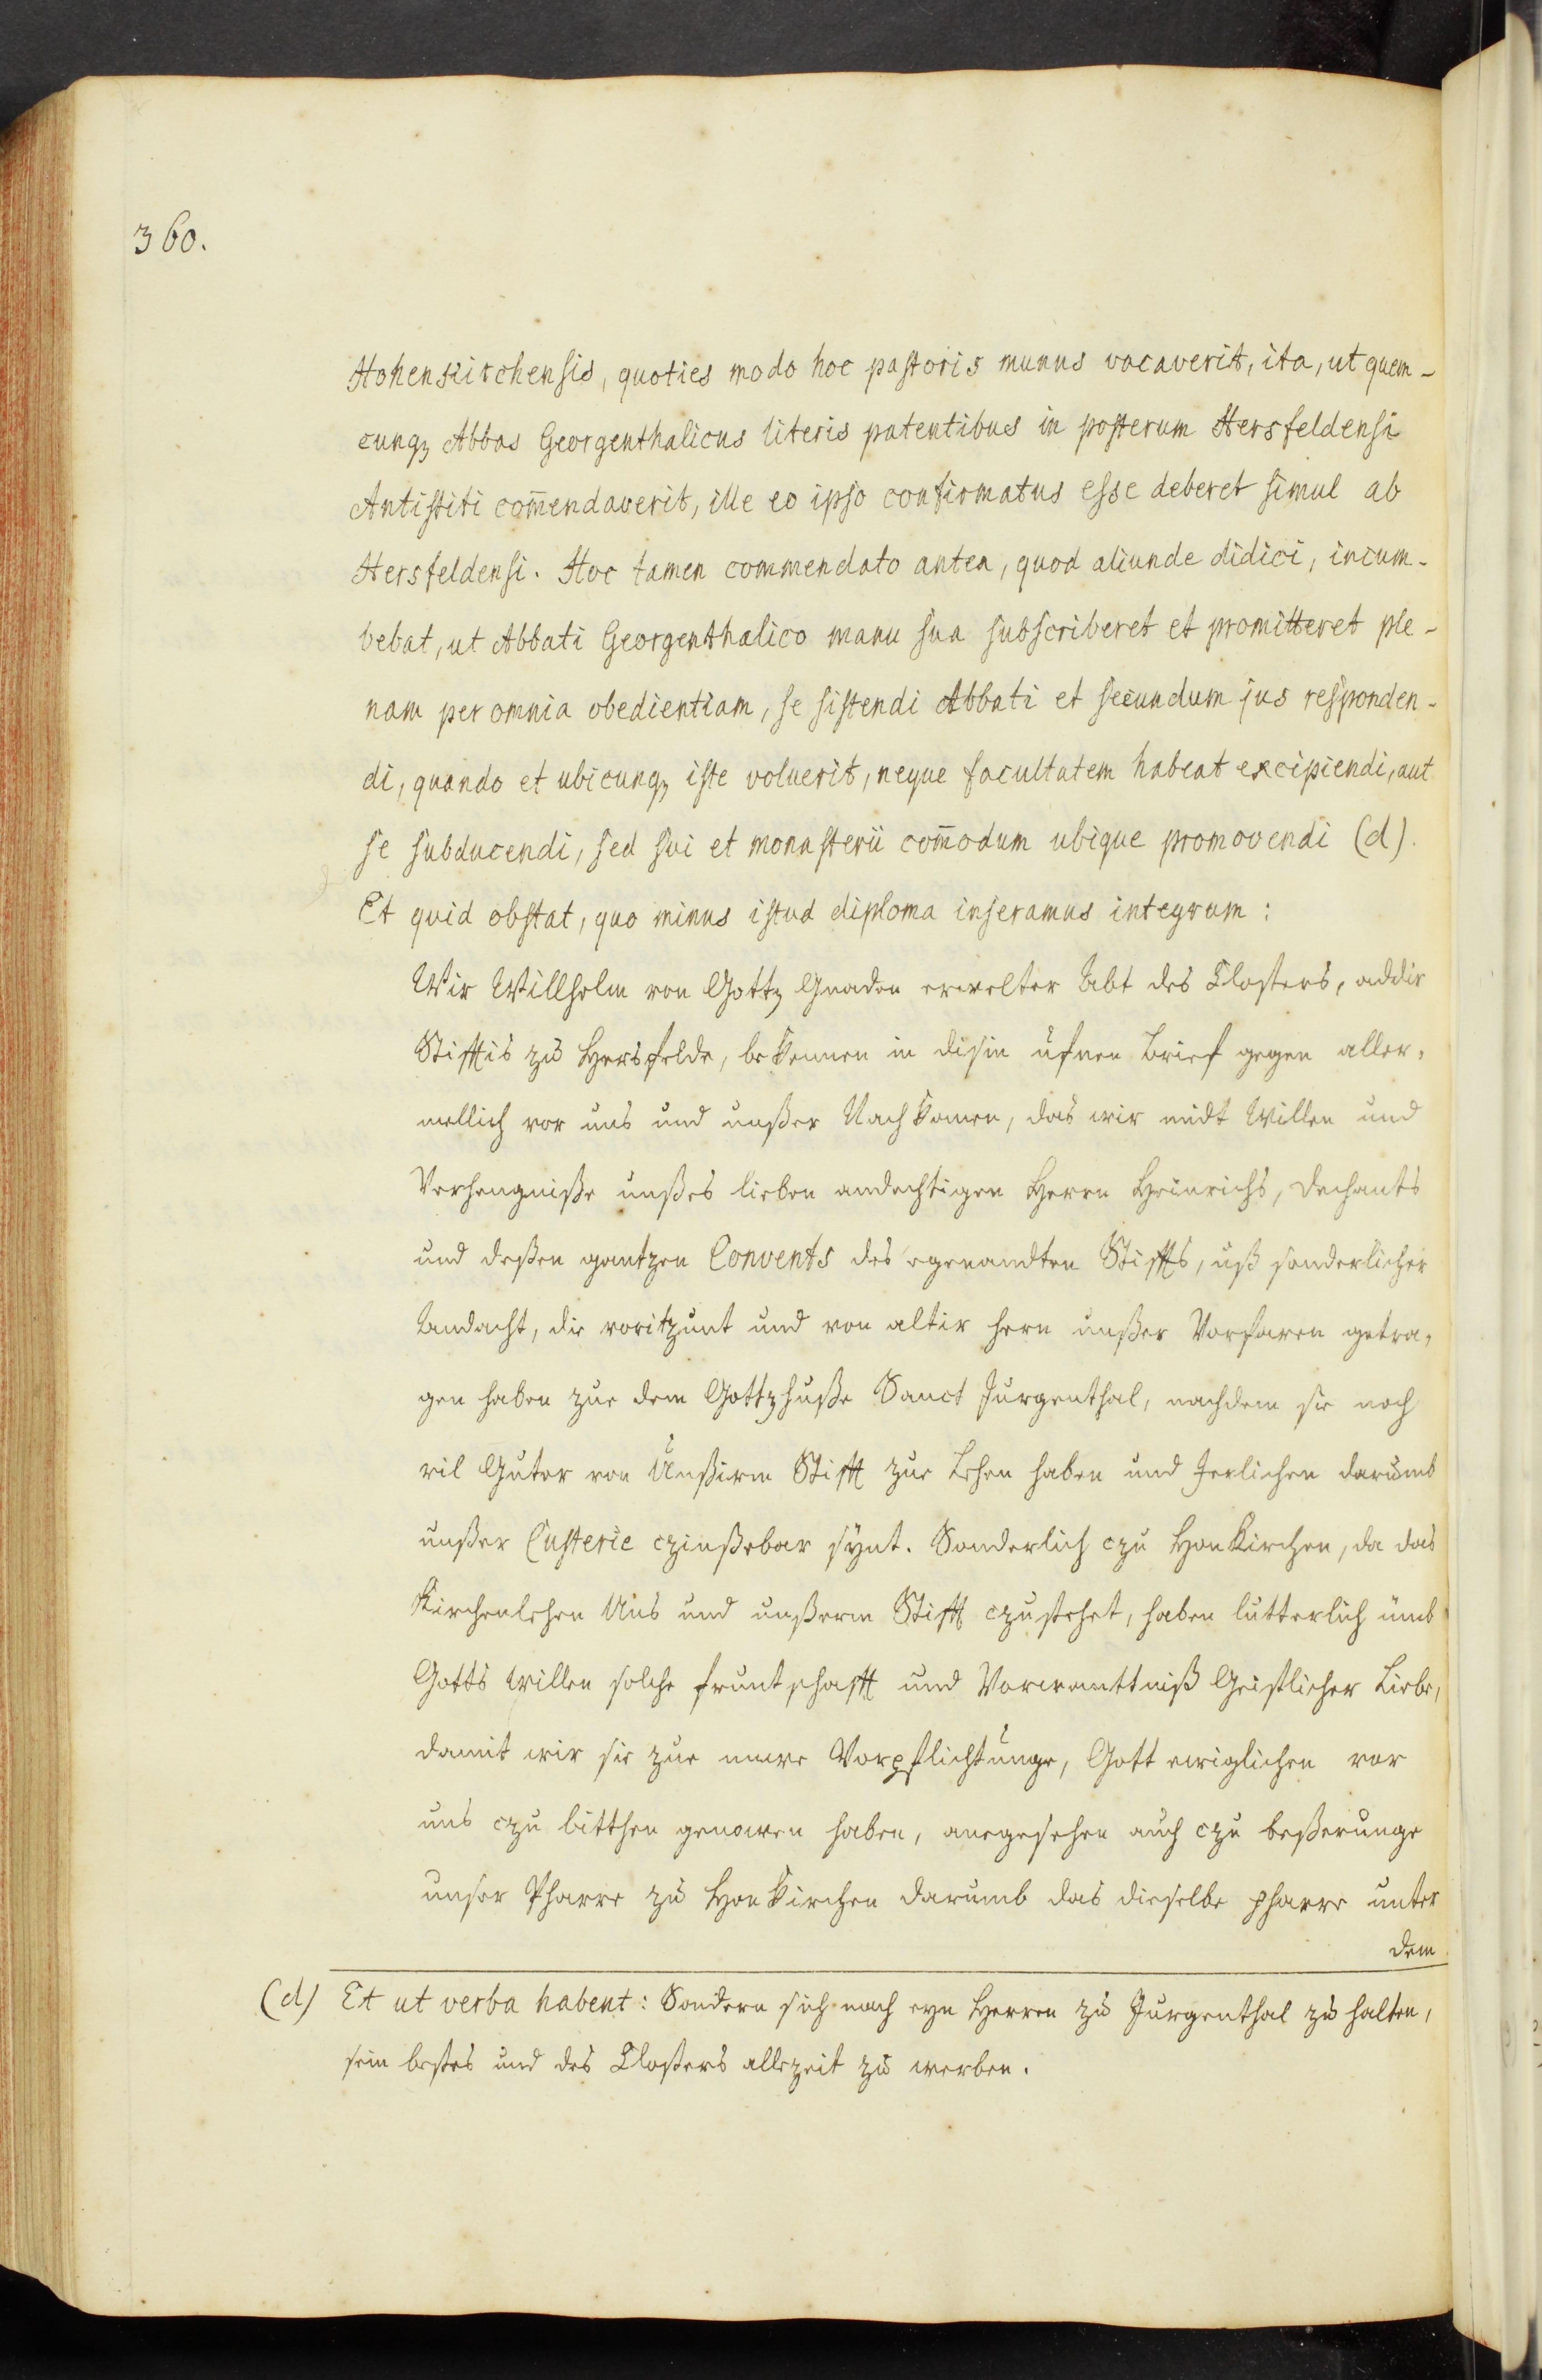 360.
Hohenkirchensis, quoties modo hoc pastoris munus vacaverit, ita, ut quem-
cunqz Abbas Georgenthalicus literis patentibus in posterum Hersfeldensi
Antistiti com̄endaverit, ille eo ipso confirmatus esse deberet simul ab
Hersfeldensi. Hoc tamen commendato antea, quod aliunde didici, incum-
bebat, ut Abbati Georgenthalico manu sua subscriberet et promitteret ple-
nam per omnia obedientiam, se sistendi Abbati et secundum jus responden-
di, quando et ubicunqz iste voluerit, neque facultatem habeat excipiendi, aut
se subducendi, sed sui et monasterii com̄odum ubique promovendi (d).
Et quid obstat, quo minus istud diploma inseramus integrum:
Wir Willhelm von Gottz Gnaden erwelter Abt des Closters, addir
Stifftis zu Hersfelde, bekennen in disin ufnen Brief gegen aller-
mellich vor uns und unßer Nachkomen, das wir midt Willen und
Verhengniße unßes lieben andechtigen Herrn Heinrichs, Dechants
und deßen gantzen Convents des egenandten Stiffts, uß sonderlicher
Andacht, die voritzunt und von altir hern unßer Vorfaren getra-
gen haben zue dem Gottzhuße Sanct Jurgenthal, nachdem sie noch
vil Guter von Unßirm Stifft zue Lehen haben und Jerlichen darumb
unßer Custerie czinßebar synt. Sonderlich czu Honkirchen, da das
Kirchenlehen Uns und unßerm Stifft czustehet, haben lutterlich umb
Gotts willen solche fruntschafft und Vorwanttniß Geistlicher Liebe,
damit wir sie zue newe Vorpflichtunge, Gott ewiglichen vor
uns czu bitthen genomen haben, anegesehen auch czu beßerunge
unser Pharre zu Honkirchen darumb das dieselbe pharre unter
dem
(d) Et ut verba habent: Sondern sich nach eyn Herren zu Jurgenthal zu halten,
sein bestes und des Closters allezeit zu werben.